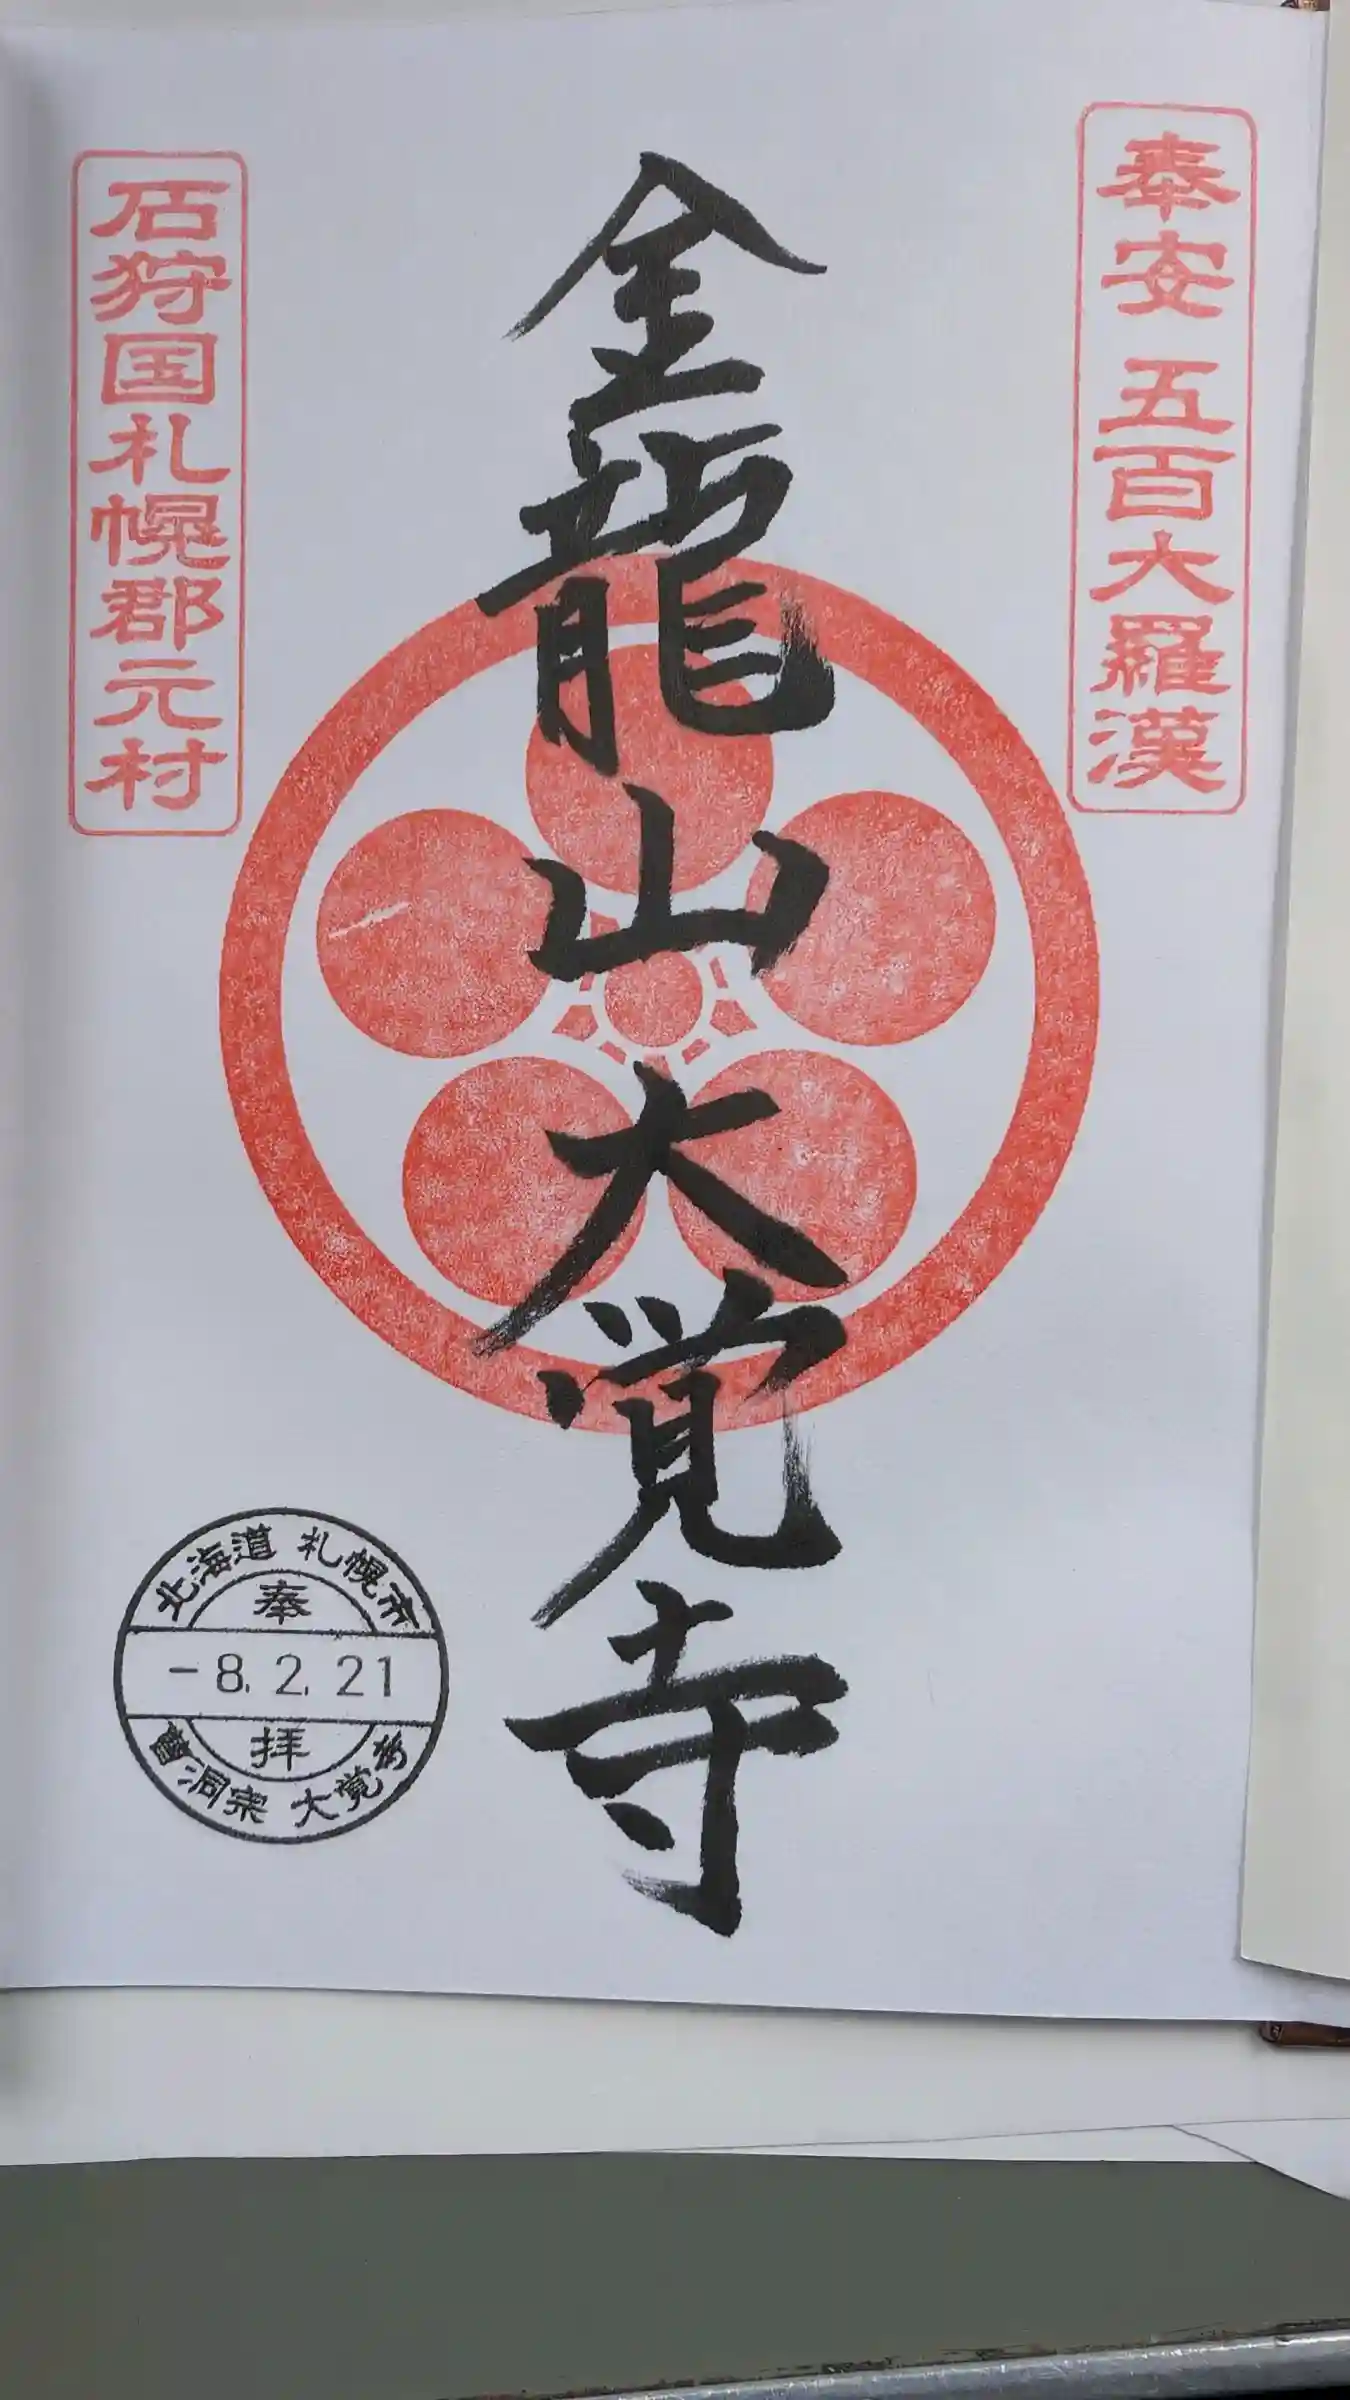 奉安 五百大羅漢
金龍山大覚寺
石狩国札幌郡元村
北海道 札幌市
奉
-8.2.21
拝
曹洞宗 大覚寺